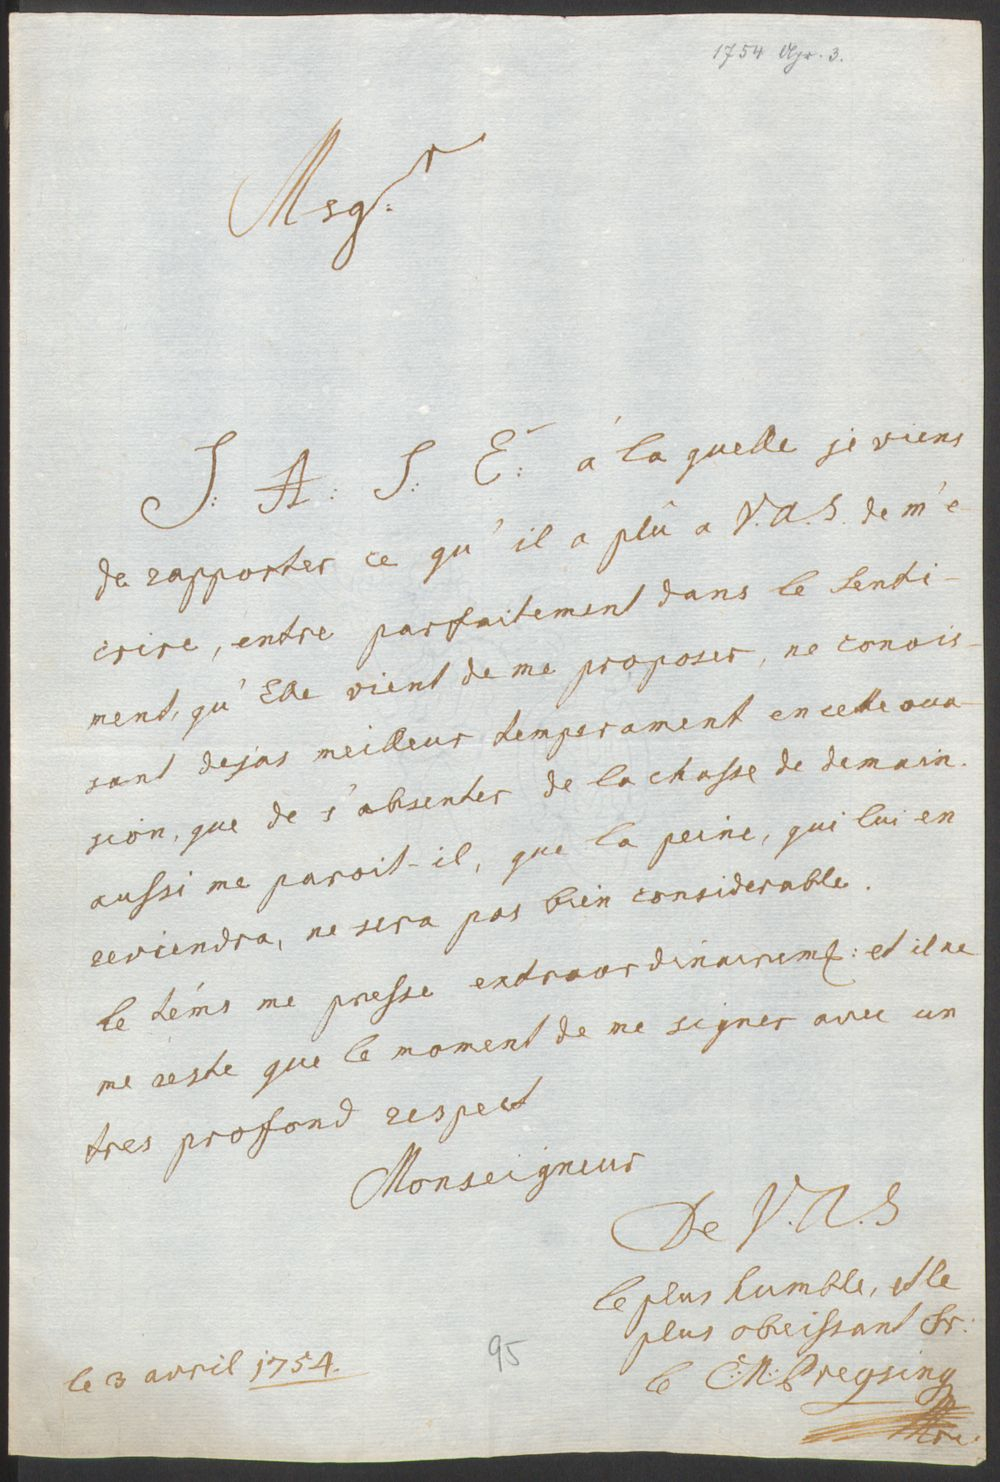 1754 Apr. 3.
Msg:r
S: A: S: E: a la quelle je viens
de rapporter ce qu'il a plû a V.A.S. de m'e-
crire, entre parfaitement dans le senti-
ment, qu'Elle vient de me proposer, ne conois-
sant dejas meilleur temperament en cette occa-
sion, que de s'absenter de la chasse de demain.
aussi me paroit-il, que la peine, qui lui en
reviendra, ne sera pas bien considerable.
le téms me presse extraordinairemt: et il ne
me reste que le moment de me signer avec un
tres profond respect
Monseigneur
De V.A.S
le plus humble, et le
plus obeissant Sr:
le
le 3 avril 1754.
95